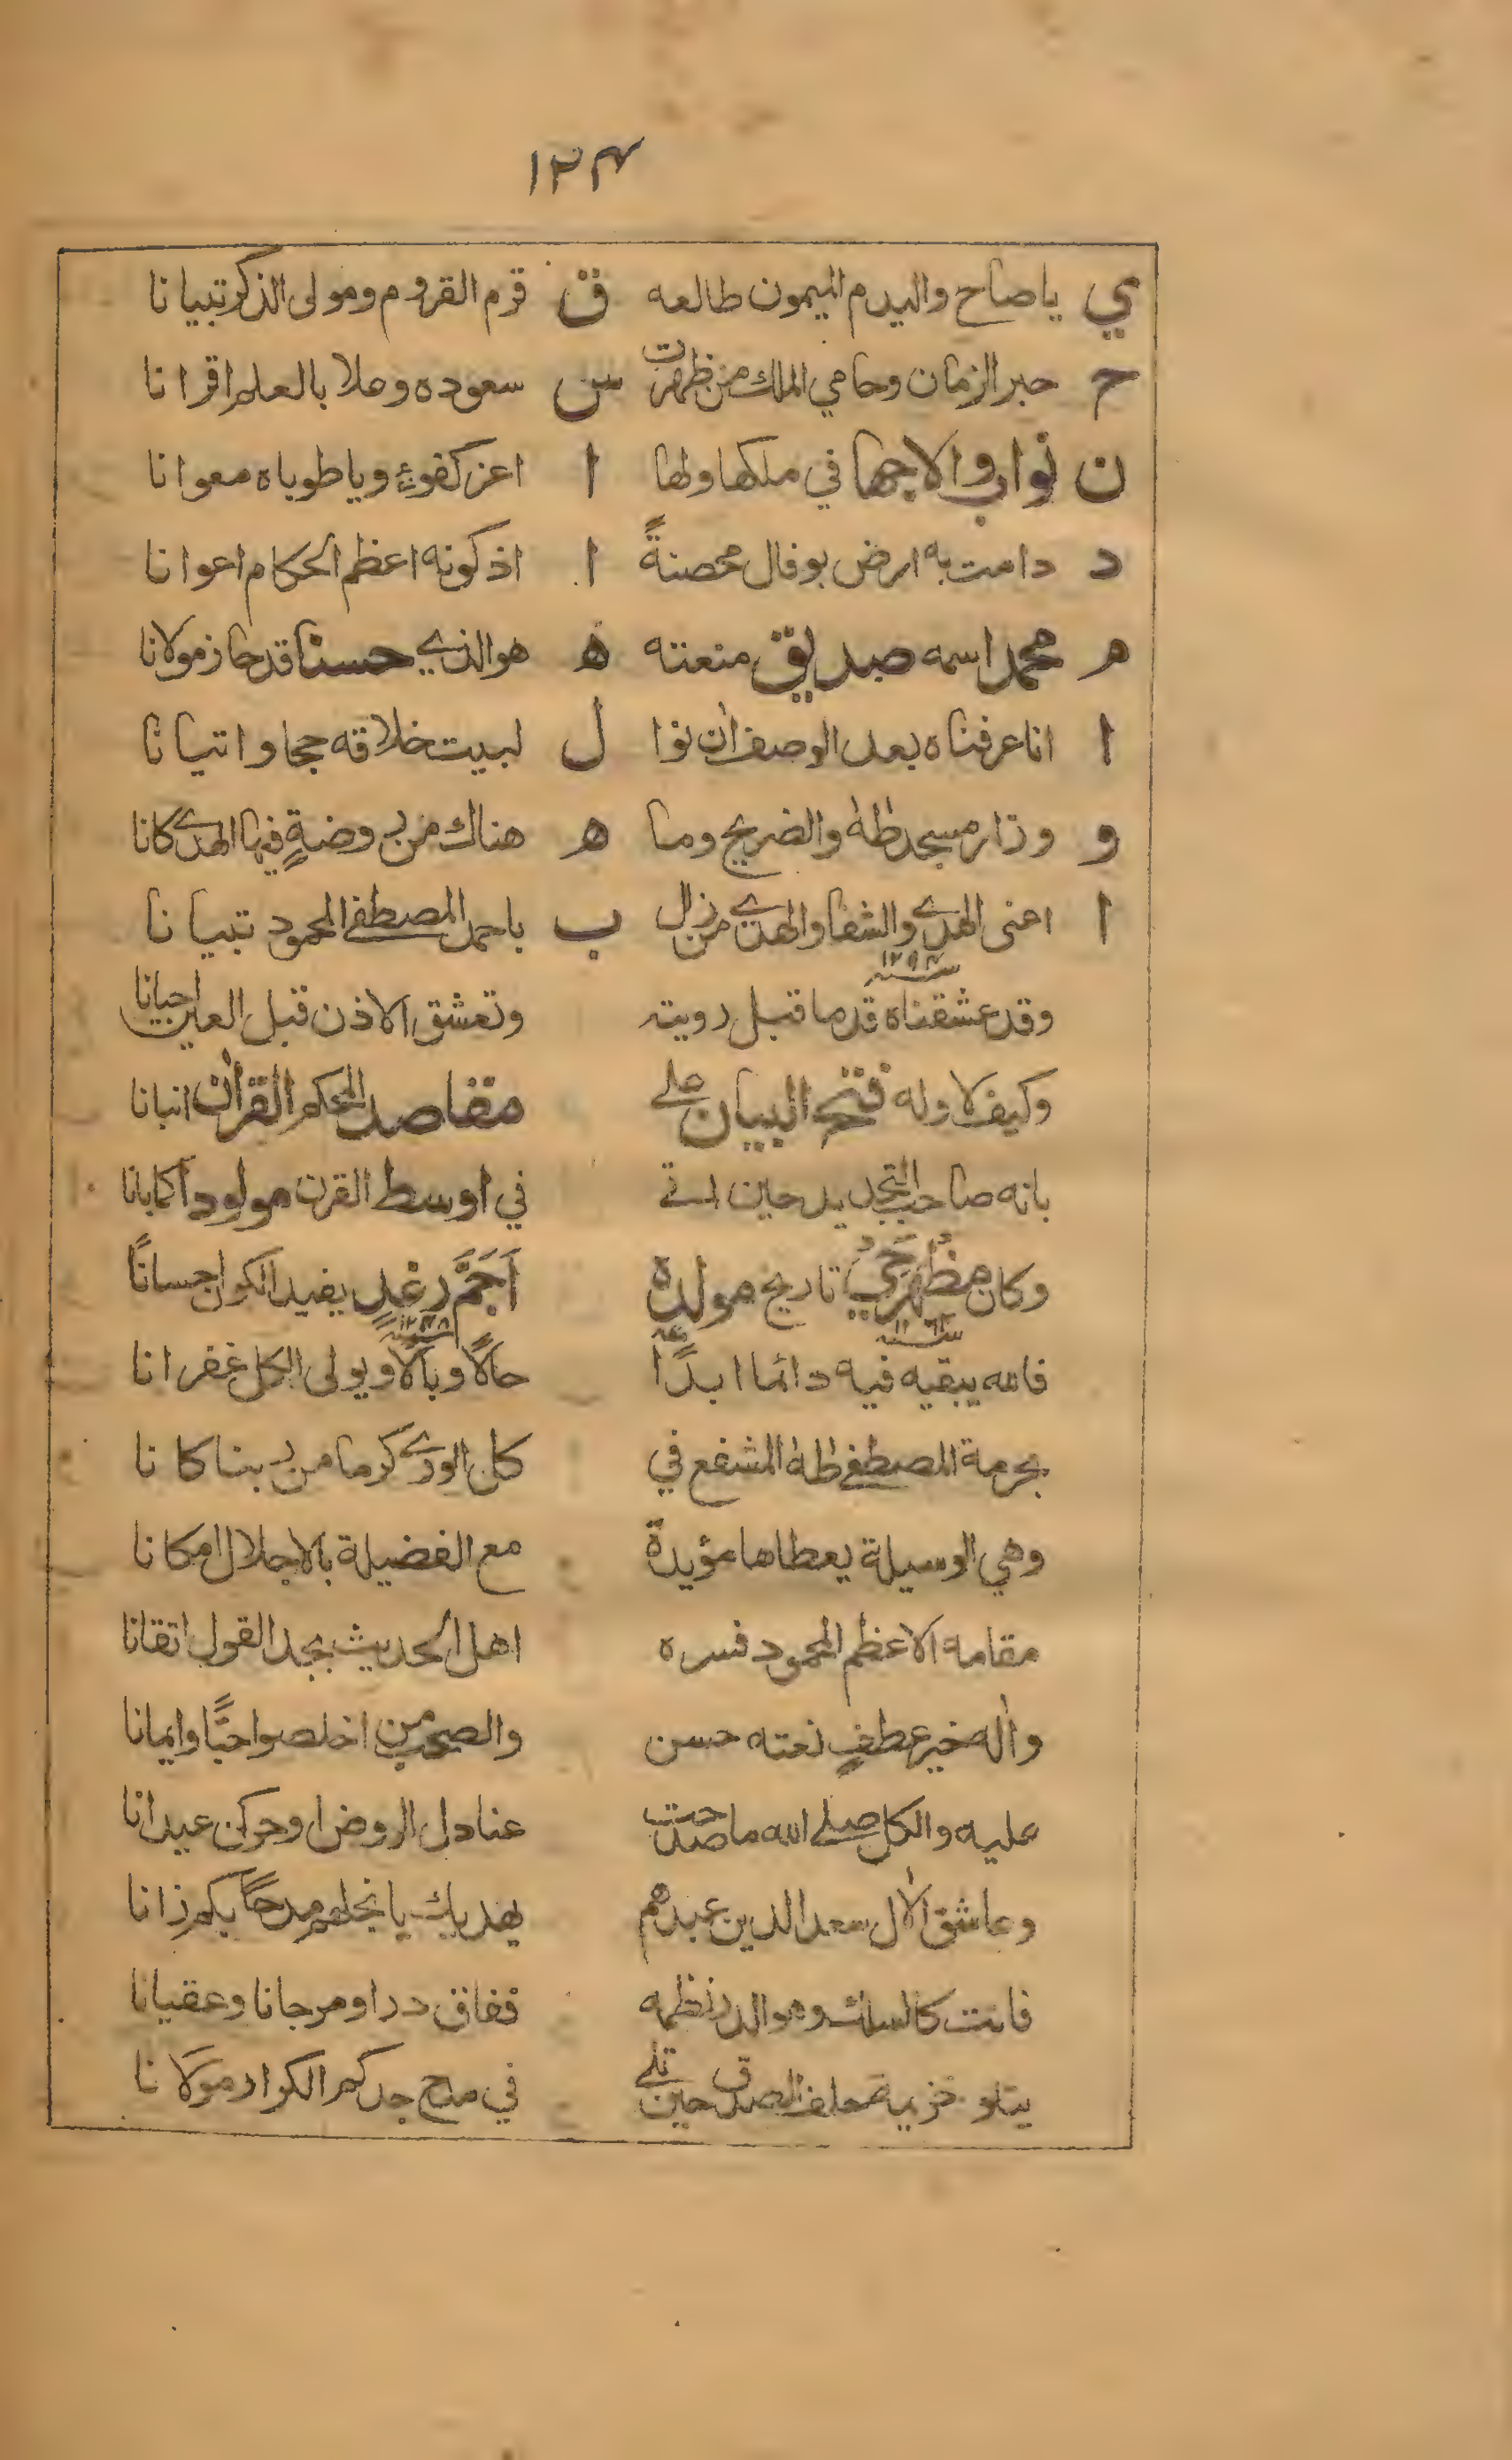 ١٢٤
ي ياصاح واليدم الميمون طالعه ق قرم القروم ومولى الذكر تبيانا
ح حبر الزمان وحامي الملك من ظهرت س سعوده وعلا بالعلم اقرانا
ن نواب والاجها في ملكها ولها ا اعز كفوءٍ ويا طوباه معوانا
د دامت به ارض بوفال محصنةً ا اذ كونه اعظم الحكام اعوانا
م محمد اسمه صديق منعته ه هو الذي حسنا قد حاز مولانا
ا انا عرفناه بعد الوصف ان نوا ل لبيت خلاقه حجا واتيانا
و وزار مسجد طه والضريح وما ه هناك من روضةٍ فيها الهدى كانا
ا اعنى الهدى والشفا والهدى من زال ب باحمد المصطفى المحمود تبيانا
١٢٩٨ سنه
وقد عشقناه قدما قبل رويته وتعشق الاذن قبل العين احيانا
وكيف لا وله فتح البيان على مقاصد المحكم القرآن انبانا
بانه صاحب التجديد حين اتى في اوسط القرن مولوداً كما بانا
وكان مظهر حي تاريخ مولده اَجَمَّ رغد يفيد الكون احسانًا
١٢٤٨ سنه
فالله يبقيه فيه دائما ابدًا حالًا وبالًا ويولى الكل غفرانا
بحرمة المصطفى طه المشفع في كل الورى كرما من ربنا كانا
وهي الوسيلة يعطاها مؤيدة مع الفضيلة بالاجلال امكانا
مقامه الاعظم المحمود فسره اهل الحديث بجد القول اتقانا
واٰله خير عطفٍ نعته حسن والصحب من اخلصوا حبًا وايمانا
عليه والكل صلى الله ما صدحت عنادل الروض او حركن عيدانا
وعاشق الاٰل سعد الدين عبدهم يهديك يا نجلهم مدحًا بكم زانا
فانت كالسلك وهو الدر نظمه ففاق درا ومرجانا وعقيانا
يتلو خلف الصدق حين تلى في مدح جدكم الكرار مولانا